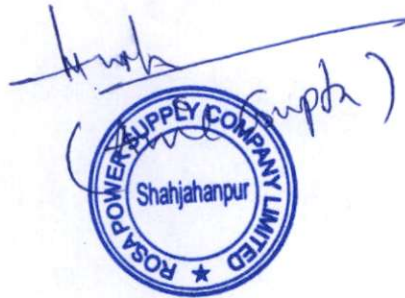 Gupta)
ROSA POWER SUPPLY COMPANY LIMITED
Shahjahanpur